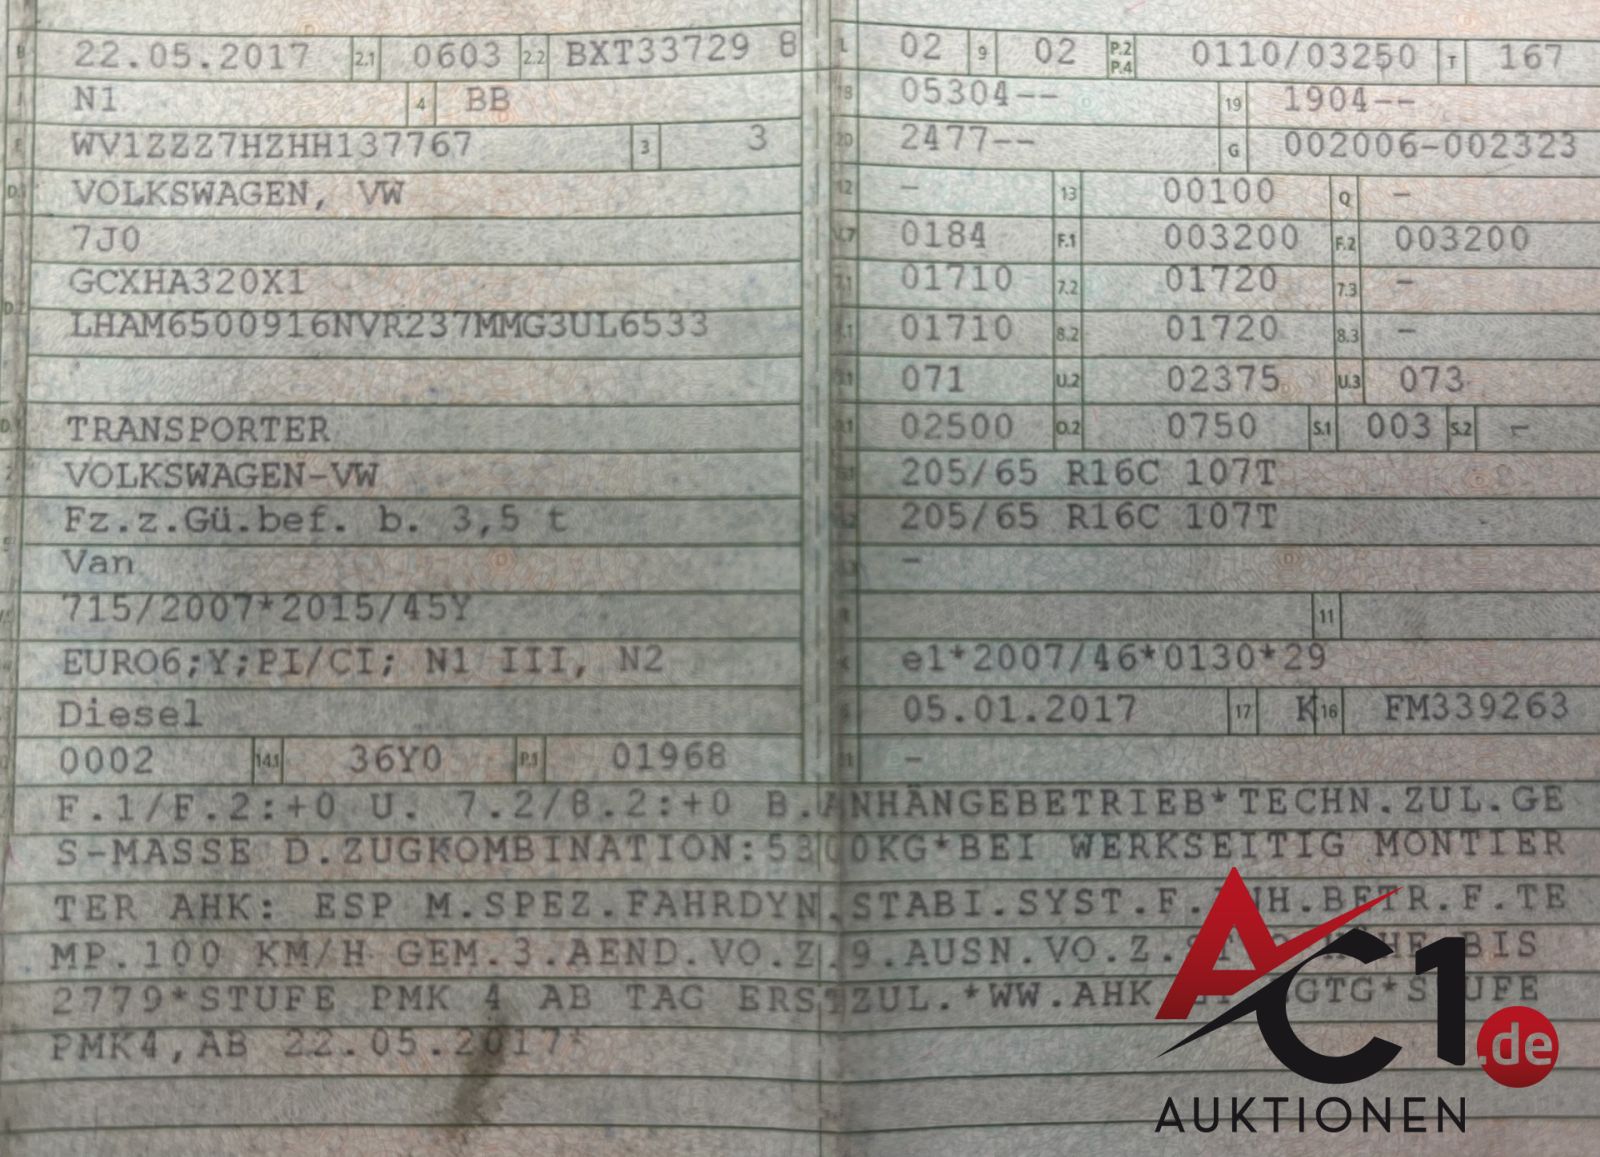 B 22.05.2017 2.1 0603 2.2 BXT33729 8
J N1 4 BB
E WV1ZZZ7HZHH137767 3 3
D.1 VOLKSWAGEN, VW
7J0
D.2 GCXHA320X1
LHAM6500916NVR237MMG3UL6533
TRANSPORTER
VOLKSWAGEN-VW
Fz.z.Gü.bef. b. 3,5 t
Van
715/2007*2015/45Y
EURO6;Y;PI/CI; N1 III, N2
Diesel
0002 14.1 36Y0 P.1 01968
L 02 9 02 P.2 P.4 0110/03250 T 167
18 05304-- 19 1904--
20 2477-- G 002006-002323
12 - 13 00100 Q -
V.7 0184 F.1 003200 F.2 003200
7.1 01710 7.2 01720 7.3 -
8.1 01710 8.2 01720 8.3 -
U.1 071 U.2 02375 U.3 073
O.1 02500 O.2 0750 S.1 003 S.2 -
205/65 R16C 107T
205/65 R16C 107T
-
R 11
K e1*2007/46*0130*29
6 05.01.2017 17 K 16 FM339263
21 -
F.1/F.2:+0 U. 7.2/8.2:+0 B.ANHÄNGEBETRIEB*TECHN.ZUL.GE
S-MASSE D.ZUGKOMBINATION:5300KG*BEI WERKSEITIG MONTIER
TER AHK: ESP M.SPEZ.FAHRDYN.STABI.SYST.F.ANH.BETR.F.TE
MP.100 KM/H GEM.3.AEND.VO.Z.9.AUSN.VO.Z. BIS
2779*STUFE PMK 4 AB TAG ERSTZUL.*WW.AHK GTG*STUFE
PMK4,AB 22.05.2017*
AC1.de
AUKTIONEN